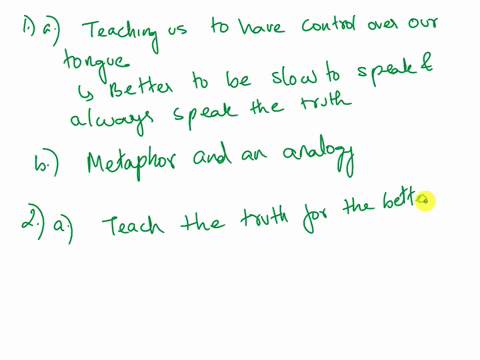 1.) a.) Teaching us to have control over our
tongue
↳ Better to be slow to speak &
always speak the truth
b.) Metaphor and an analogy
2.) a.) Teach the truth for the bette